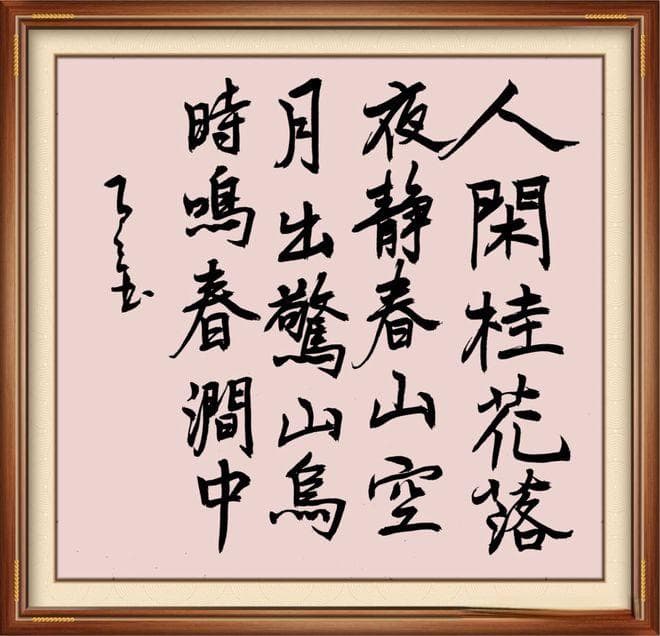 人閑桂花落
夜静春山空
月出驚山烏
時鳴春澗中